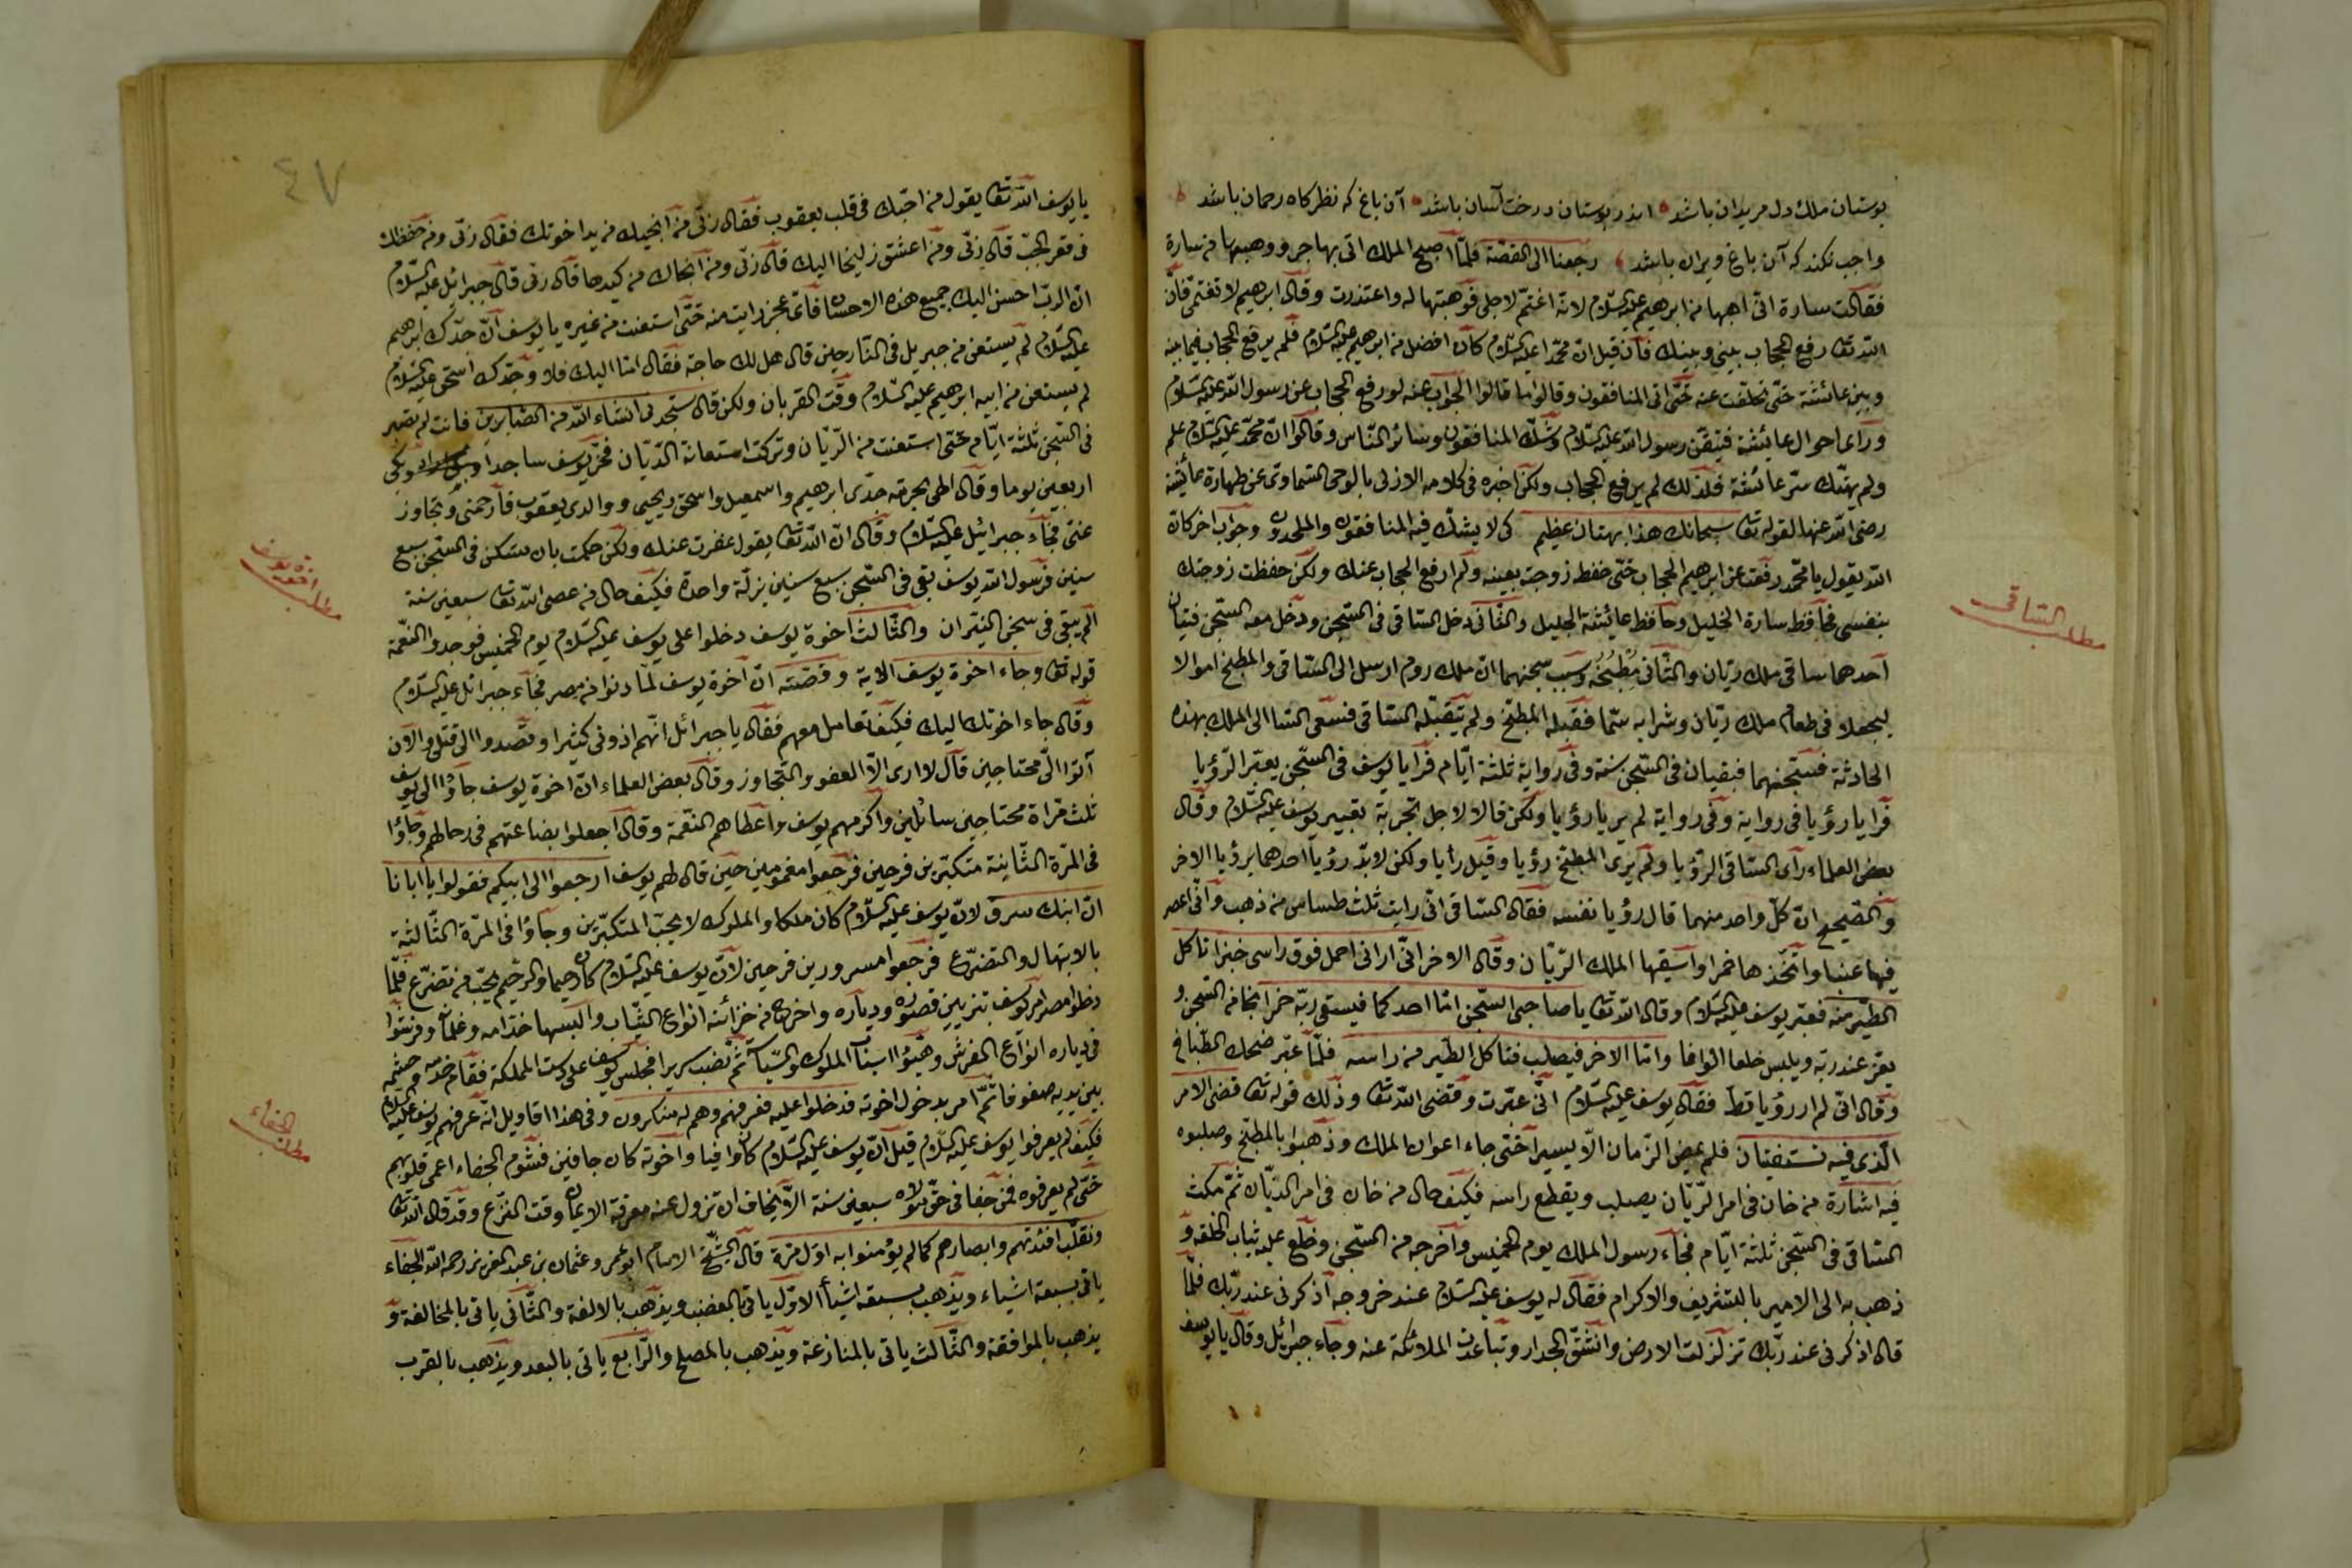 بوستان ملك دل مريدان باشد اندر بوستان درخت آسان باشد آن باغ كه نظركاه رحمان باشد
واجب نكند كه آن باغ ويران باشد رجعنا الى القصّة فلمّا اصبح الملك اتى بهاجر ووهبها من سارة
فقالت سارة انّى اهبها من ابرهيم عليه السّلام لانّه اغتمّ لاجلى فوهبتها له واعتذرت وقال ابرهيم لا تغتمّى فانّ
الله تعا رفع الحجاب بينى وبينك فان قيل انّ محمّدا عليه السّلام كان افضل من ابرهيم عليه السّلام فلم يرفع الحجاب فيما بينه
وبين عائشة حتّى تخلّفت عنه حتّى اتى المنافقون وقالوا ما قالوا الجواب عنه لو رفع الحجاب عن رسول الله عليه السّلام
ورأى احوال عائشة فتيقّن رسول الله عليه السّلام وشكّ المنافقون وسائر النّاس وقالوا انّ محمّد عليه السّلام علم
ولم يهتك ستر عائشة فلذلك لم يرفع الحجاب ولكن اخبره فى كلامه الازلى بالوحى السّماوى عن طهارة عائشة
رضى الله عنها لقوله تعا سبحانك هذا بهتان عظيم كى لا يشكّ فيه المنافقون والملحدون وجواب اخر كانّ
الله يقول يا محمّد رفعت عن ابرهيم الحجاب حتّى حفظ زوجته بعينه ولم ارفع الحجاب عنك ولكن حفظت زوجتك
بنفسى فحافظ سارة الخليل وحافظ عائشة الجليل والثّانى دخل السّاقى فى السّجن ودخل معه السّجن فتيان
احدهما ساقى ملك ريّان والثّانى مطبخه وسبب سجنهما انّ ملك روم ارسل الى السّاقى والمطبخ اموالا
ليجعلا فى طعام ملك ريّان وشرابه سمّا فقبله المطبخ ولم يتقبّله السّاقى فسعى السّا الى الملك بهذه
الحادثة فسجنهما فبقيان فى السّجن سنة وفى رواية ثلثة ايّام فرايا يوسف فى السّجن يعبّر الرّؤيا
فرايا رؤيا فى رواية وفى رواية لم يريا رؤيا ولكن قالا لاجل تجربة تعبير يوسف عليه السّلام وقال
بعض العلماء رأى السّاقى الرّؤيا ولم يرى المطبخ رؤيا وقيل رأيا ولكن لا بدّ رؤيا احدهما برؤيا الاخر
والصّحيح انّ كلّ واحد منهما قال رؤيا نفسه فقال السّاقى انّى رايت ثلث طساس من ذهب وانّى اعصر
فيها عنبا واتّخذها خمرا واسقيها الملك الريّان وقال الاخر انّى ارانى احمل فوق راسى خبزا تاكل
الطّير منه فعبّر يوسف عليه السّلام وقال الله تعا يا صاحبى السّجن امّا احدكما فيسقى ربّه خمرا نجا من السّجن و
يعزّ عند ربّه ويلبس خلعا الوافا وامّا الاخر فيصلب فتاكل الطّير من راسه فلمّا عبّر ضحك الطّبّاخ
وقال انّى لم ار رؤيا قطّ فقال يوسف عليه السّلام انّى عبّرت وقضى الله تعا وذلك قوله تعا قضى الامر
الّذى فيه تستفتيان فلم يمض الزّمان الّا يسيرا حتّى جاء اعوان الملك وذهبوا بالمطبخ وصلبوه
فيه اشارة من خان فى امر الرّيّان يصلب ويقطع راسه فكيف حال من خان فى امر الديّان ثمّ مكث
السّاقى فى السّجن ثلثة ايّام فجاء رسول الملك يوم الخميس واخرجه من السّجن وخلع عليه ثياب الخلقة و
ذهب به الى الامير بالتشريف والاكرام فقال له يوسف عليه السّلام عند خروجه اذكرنى عند ربّك فلمّا
قال اذكرنى عند ربّك تزلزلت الارض وانشقّ الجدار وتباعدت الملائكة عنه وجاء جبرائيل وقال يا يوسف
مطلب السّاقى
٤٧
يا يوسف الله تعا يقول من احبّك فى قلب يعقوب فقال ربّى من انجيك من يد اخوتك فقال ربّى ومن حفظك
فى قعر الجبّ قال ربّى ومن اعشق زليخا اليك قال ربّى ومن انجاك من كيدها قال ربّى قال جبرائل عليه السّلام
انّ الربّ احسن اليك جميع هذه الاحسان فاىّ عجز رايت منه حتّى استعنت من غيره يا يوسف انّ جدّك ابرهيم
عليه السّلام لم يستعن من جبريل فى النّار حين قال هل لك حاجة فقال امّا اليك فلا وجدّك اسحق عليه السّلام
لم يستعن من ابيه ابرهيم عليه السّلام وقت القربان ولكن قال ستجدنى انشاء الله من الصّابرين فانت لم تصبر
فى السّجن ثلثة ايّام حتّى استعنت من الرّيّان وتركت استعانة الديّان فخرّ يوسف ساجدا وبكى
اربعين يوما وقال الهى بحرمة جدّى ابرهيم واسمعيل واسحق ويحيى ووالدى يعقوب فارحمنى وتجاوز
عنّى فجاء جبرائيل عليه السّلام وقال انّ الله تعا يقول عفرت عنك ولكن حكمت بان تسكن فى السّجن سبع
سنين فرسول الله يوسف بقى فى السّجن سبع سنين بزلّة واحدة فكيف حال من عصى الله تعا سبعين سنة
الم يبقى فى سجن النيران والثّالث اخوة يوسف دخلوا على يوسف عليه السّلام يوم الخميس فوجدوا النّعمة
قوله تعا وجاء اخوة يوسف الاية وقصّته انّ اخوة يوسف لمّا دنوا من مصر فجاء جبرائل عليه السّلام
وقال جاء اخوتك اليك فكيف تعامل معهم فقال يا جبرائل انّهم اذونى كثيرا وقصدوا الى قتلى والان
اتوا الىّ محتاجين قال لا ارى الّا العفو والتّجاوز وقال بعض العلماء انّ اخوة يوسف جاؤا الى يوسف
ثلث مراة محتاجين سائلين واكرمهم يوسف واعطاهم النّعمة وقال اجعلوا بضاعتهم فى رحالهم وجاؤا
فى المرّة الثّانية متكبّرين فرحين فرجعوا مغمومين حين قال لهم يوسف ارجعوا الى ابيكم فقولوا يا ابانا
انّ ابنك سرق لانّ يوسف عليه السّلام كان ملكا والملوك لا يحبّ المتكبّرين وجاؤا فى المرّة الثّالثة
بالابتهال والتضرّع فرجعوا مسرورين فرحين لانّ يوسف عليه السّلام كان رحيما والرّحيم يحبّ من تضرّع فلمّا
دخلوا مصر امر يوسف بتزيين قصوره ودياره واخرج من خزائنه انواع الثّياب والبسها خدّامه وغلمانه وفرشوا
فى دياره انواع الفرش وهيّؤا اسباب الملوك والسّياسة ثمّ نصب سريرا فجلس يوسف على دست المملكة فقام خدمه وحشمه
بين يديه صفوفا ثمّ امر بدخول اخوته فدخلوا عليه فعرفهم وهم له منكرون وفى هذا اقاويل انّه عرفهم يوسف عليه السّلام
فكيف لم يعرفوا يوسف عليه السّلام قيل انّ يوسف عليه السّلام كان وافيا واخوته كان جافين فشوم الجفاء اعمى قلوبهم
حتّى لم يعرفوه فمن جفا فى حقّ مولاه سبعين سنة الّا يخاف ان تزول عنه معرفة الايمان وقت النزع وقد قال الله تعا
ونقلّب افئدتهم وابصارهم كما لم يؤمنوا به اوّل مرّة قال الشّيخ الامام ابو عمرو عثمان بن عبد العزيز رحمه الله الجفاء
ياتى بسبعة اشياء ويذهب بسبعة اشيأ الاوّل ياتى بالغضب ويذهب بالالفة والثّانى ياتى بالمخالفة و
يذهب بالموافقة والثّالث ياتى بالمنازعة ويذهب بالصلح والرّابع ياتى بالبعد ويذهب بالقرب
مطلب
مطلب الجفاء